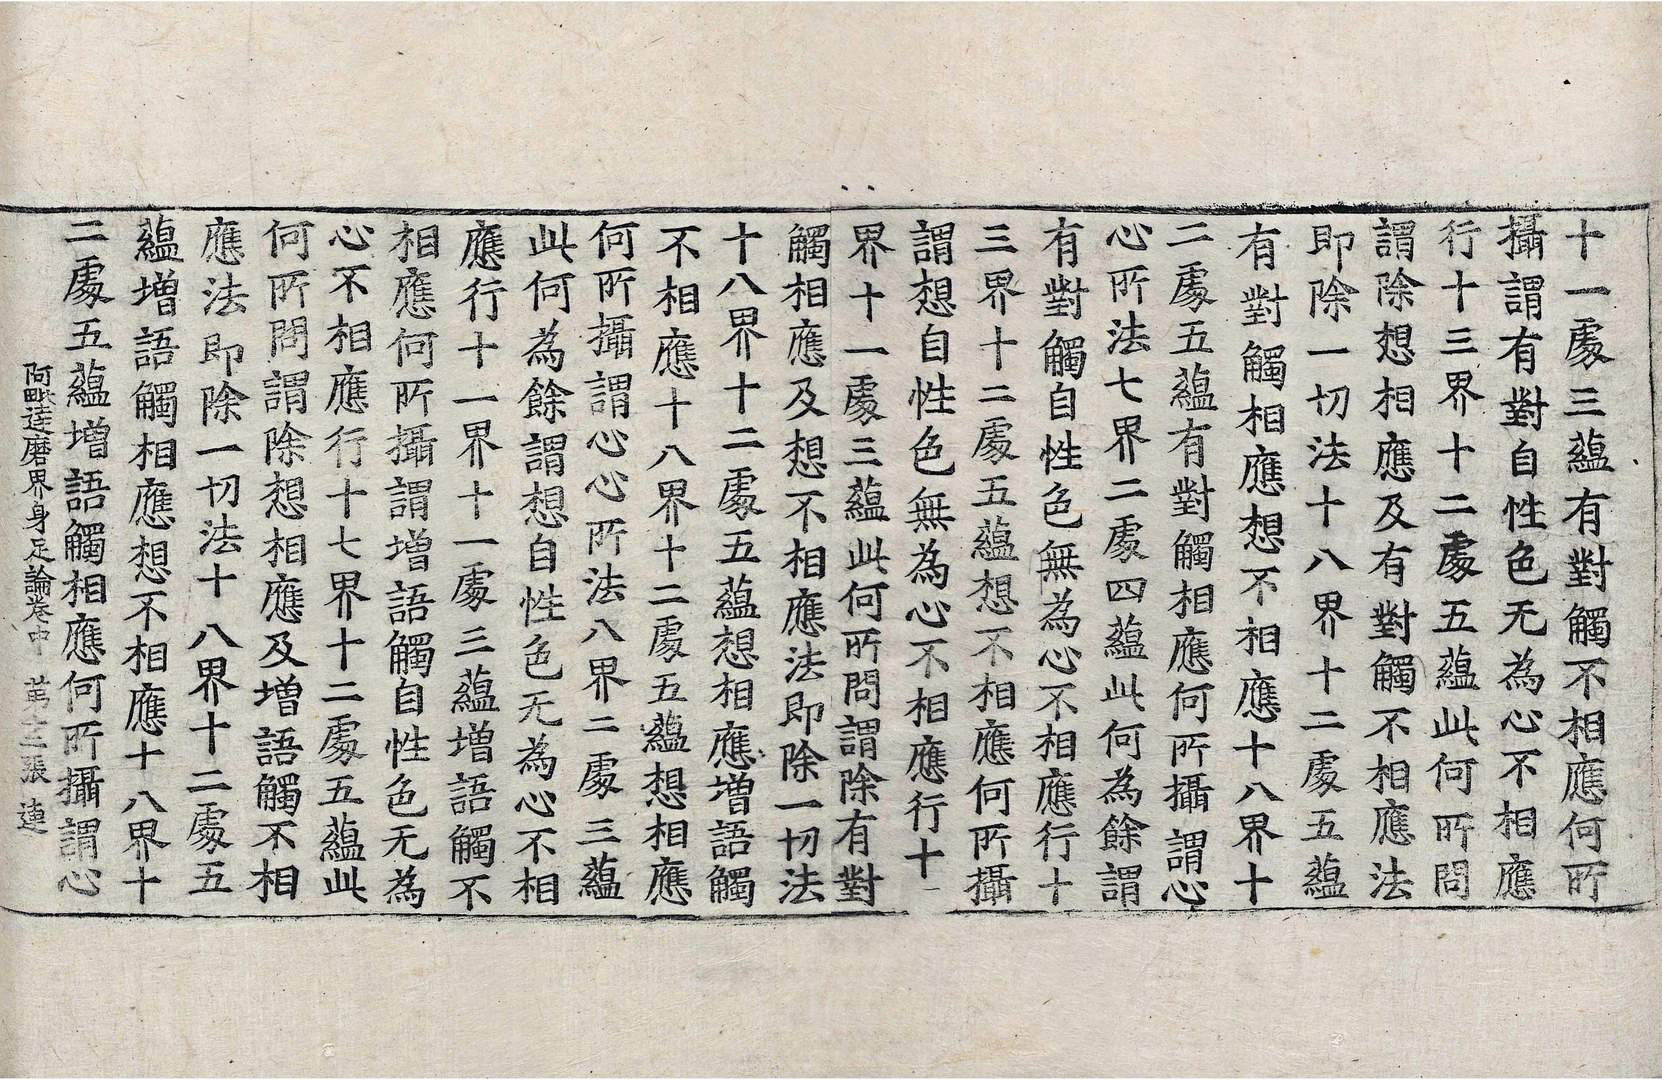 十一處三蘊有對觸不相應何所
攝謂有對自性色无為心不相應
行十三界十二處五蘊此何所問
謂除想相應及有對觸不相應法
即除一切法十八界十二處五蘊
有對觸相應想不相應十八界十
二處五蘊有對觸相應何所攝謂心
心所法七界二處四蘊此何為餘謂
有對觸自性色無為心不相應行十
三界十二處五蘊想不相應何所攝
謂想自性色無為心不相應行十一
界十一處三蘊此何所問謂除有對
觸相應及想不相應法即除一切法
十八界十二處五蘊想相應增語觸
不相應十八界十二處五蘊想相應
何所攝謂心心所法八界二處三蘊
此何為餘謂想自性色无為心不相
應行十一界十一處三蘊增語觸不
相應何所攝謂增語觸自性色无為
心不相應行十七界十二處五蘊此
何所問謂除想相應及增語觸不相
應法即除一切法十八界十二處五
蘊增語觸相應想不相應十八界十
二處五蘊增語觸相應何所攝謂心
阿毗達磨界身足論卷中 苐十三張 連